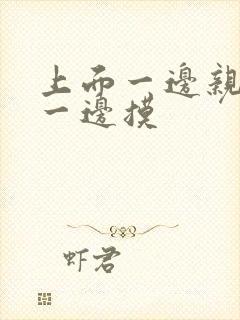 上而一邊親
一邊摸
虾君